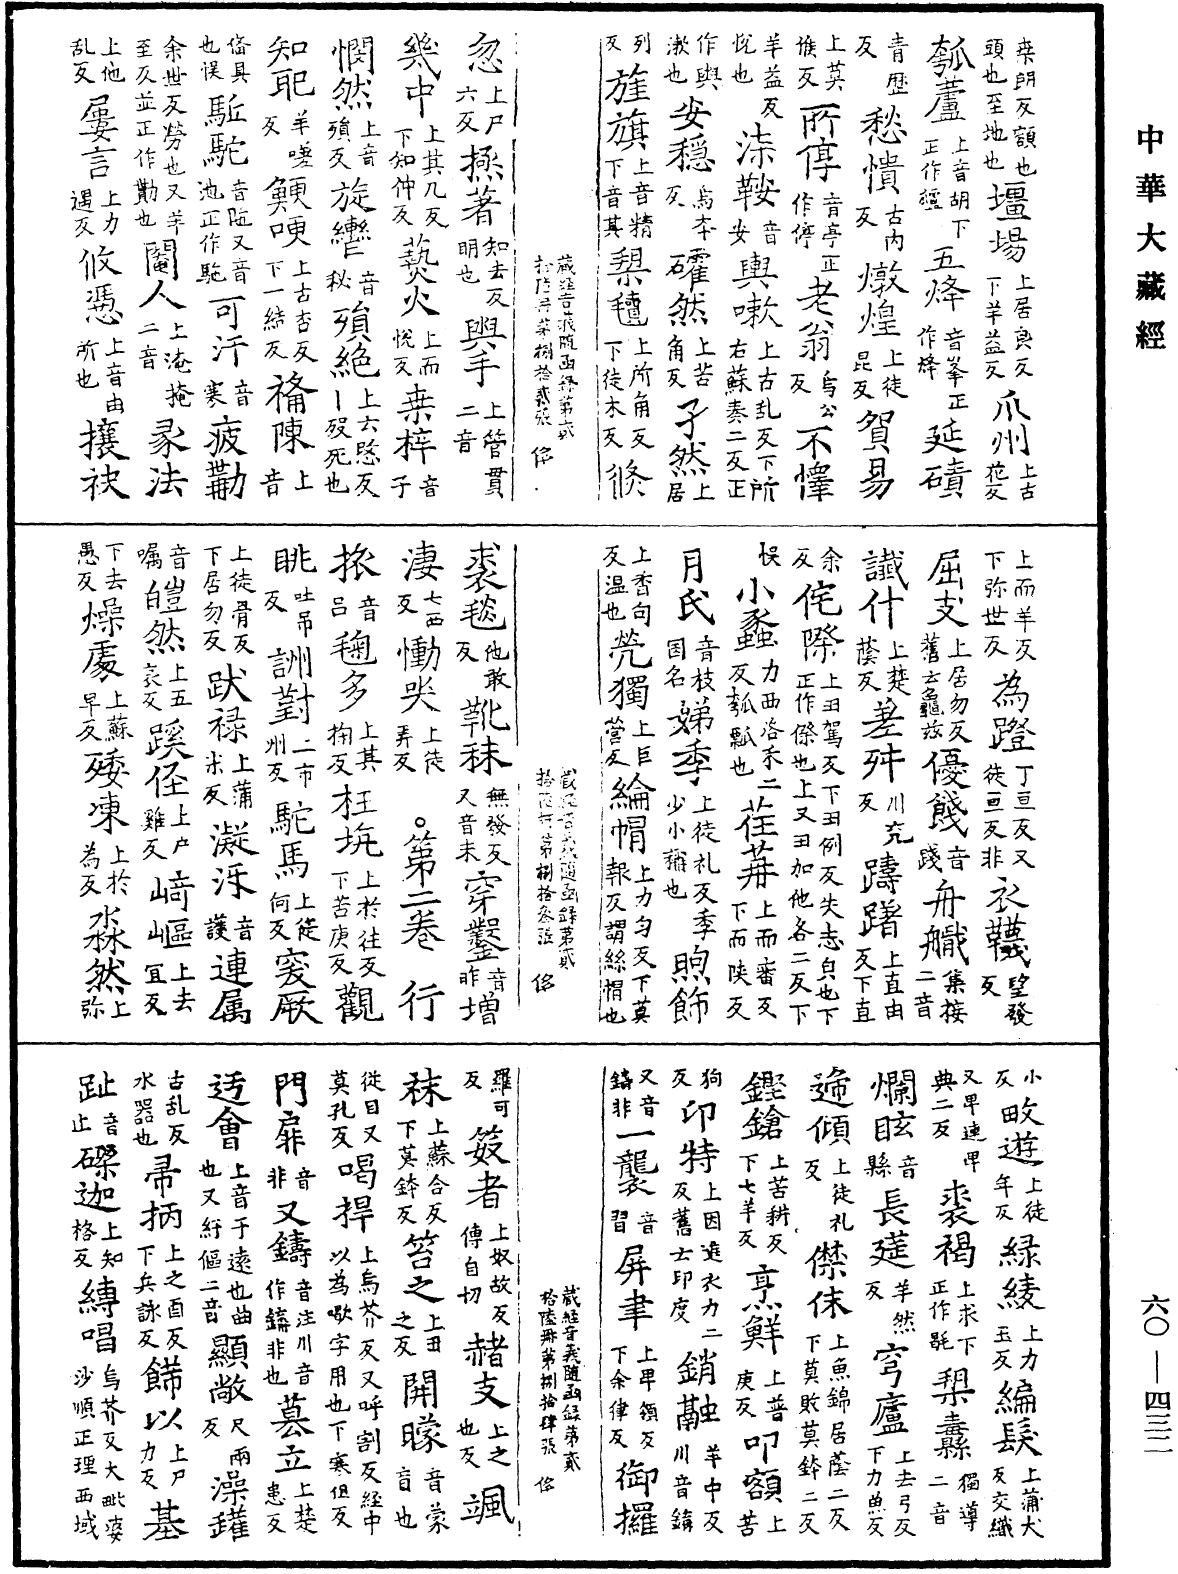 中華大藏經
六〇—四三二
桒朗反額也頭也至地也 壃場 上居良反下羊益反 爪州 上古花反
瓠蘆 上音胡下正作壚 五烽 音峯正作烽 延磧
青歷反 愁憒 古内反 燉煌 上徒昆反 貿易
上莫候反 所停 音亭正作停 老翁 烏公反 不懌
羊益反悅也 㳿鞍 音安 輿嗽 上古乱反下所右蘇奏二反正
作與漱也 安穏 烏本反 礭然 上苦角反 孑然 上居
列反 旌旗 上音精下音其 槊毽 上所角反下徒木反 倐
藏經音義隨函錄第貳
拾陸冊第捌拾貳張 俗
忽 上尸六反 極著 知去反明也 與手 上管貫二音
幾中 上其几反下知仲反 爇火 上而悅反 桒梓 音子
憫然 上音殞反 旋轡 音秘 殞絶 上六愍反丨歿死也
知耴 羊嗟反 鯁哽 上古杏反下一結反 俻陳 上音
俻具也悮 駈駝 音陁又音池正作駞 可汗 音寒 疲勩
余世反勞也又羊至反並正作勩也 閹人 上淹掩二音 彖法
上他乱反 屢言 上力遇反 攸憑 上音由所也 攘袂
上而羊反下弥世反 為蹬 丁亘反又徒亘反非 衣韈 望發反
屈支 上居勿反舊云龜兹 優餞 音踐 舟檝 集接二音
讖什 上楚蔭反 差舛 川兖反 躊躇 上直由反下直
余反 侘傺 上丑駕反下丑例反失志皃也下正作傺也上又丑加他各二反下
悮 小蠡 力西洛禾二反瓠瓢也 荏苒 上而審反下而陕反
月氏 音枝国名 娣季 上徒礼反季少小稱也 煦飾
上香句反温也 煢獨 上巨營反 綸帽 上力匀反下莫報反謂絲帽也
藏經音義隨函錄第貳
拾陸冊第捌拾叁張 俗
裘毯 他敢反 靴袜 無發反又音末 穿鑿 音昨 增
淒 七西反 慟哭 上徒弄反 。第二卷 行
捛 音吕 毱多 上其掬反 枉坑 上於往反下苦庚反 觀
眺 吐吊反 詶對 二市州反 駝馬 上徒何反 窔厥
上徒骨反下居勿反 跋禄 上蒲末反 凝冱 音護 連属
音嘱 皚然 上五哀反 蹊徑 上户雞反 崎嶇 上去冝反
下去愚反 燥處 上蘇早反 矮凍 上於為反 淼然 上弥
小反 畋遊 上徒年反 緑綾 上力玉反 編髮 上蒲犬反交織
又卑連卑典二反 裘褐 上求下正作毼 槊纛 獨導二音
爛眩 音縣 長莚 羊然反 穹廬 上去弓反下力魚反
遞傾 上徒礼反 僸佅 上魚錦居蔭二反下莫敗莫鉢二反
鏗鎗 上苦耕反下七羊反 烹鮮 上普庚反 叩額 上苦
狗反 印特 上因進衣力二反舊士印度 銷融 羊中反川音鑄
又音鑄非 一襲 音習 屏聿 上卑領反下余律反 御攞
藏經音義隨函錄第貳
拾陸冊第捌拾肆張 俗
羅可反 笯者 上奴故反傳自切 赭支 上之也反 颯
秣 上蘇合反下莫鉢反 笞之 上丑之反 開矇 音蒙盲也
從目又莫孔反 喝捍 上烏芥反又呼割反経中以為歇字用也下寒但反
門扉 音非 又鑄 音注川音作鑄非也 墓立 上楚患反
迃會 上音于遠也曲也又紆傴二音 顯敞 尺兩反 澡鑵
古乱反水器也 帚柄 上之酉反下兵詠反 餙以 上尸力反 基
趾 音止 磔迦 上知格反 縛喝 烏芥反大毗婆沙順正理西域